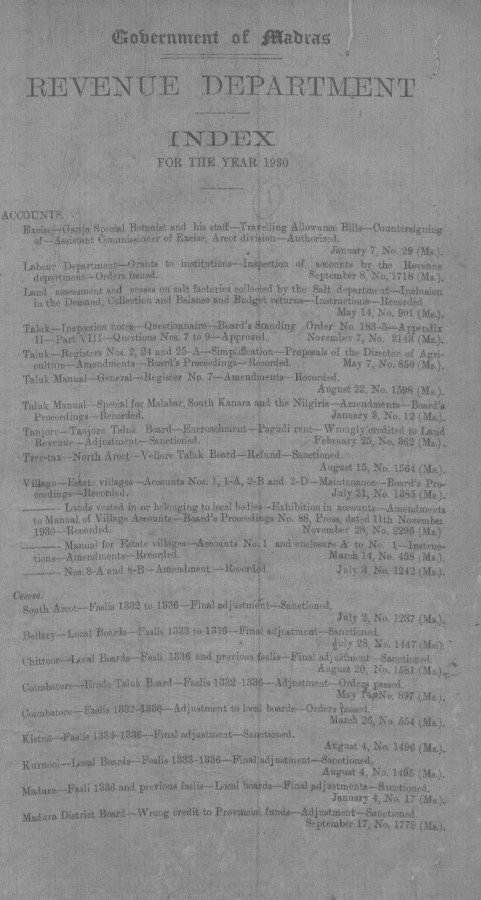 Government of Madras
REVENUE DEPARTMENT
INDEX
FOR THE YEAR 1930
ACCOUNTS.
Excise—Ganja Special Botanist and his staff—Travelling Allowance Bills—Countersigning
of—Assistant Commissioner of Excise, Arcot division—Authorized.
January 7, No. 29 (Ms.).
Labour Department—Grants to institutions—Inspection of accounts by the Revenue
department—Orders issued. September 8, No. 1718 (Ms.).
Land assessment and cesses on salt factories collected by the Salt department—Inclusion
in the Demand, Collection and Balance and Budget returns—Instructions—Recorded.
May 14, No. 901 (Ms.).
Taluk—Inspection notes—Questionnaire—Board's Standing Order No. 183-5—Appendix
II—Part VIII—Questions Nos. 7 to 9—Approved. November 7, No. 2143 (Ms.).
Taluk—Registers Nos. 2, 24 and 25-A—Simplification—Proposals of the Director of Agri-
culture—Amendments—Board's Proceedings—Recorded. May 7, No. 850 (Ms.).
Taluk Manual—General—Register No. 7—Amendments—Recorded.
August 22, No. 1598 (Ms.).
Taluk Manual—Special for Malabar, South Kanara and the Nilgiris—Amendments—Board's
Proceedings—Recorded. January 3, No. 12 (Ms.).
Tanjore—Tanjore Taluk Board—Encroachment—Pagudi rent—Wrongly credited to Land
Revenue—Adjustment—Sanctioned. February 25, No. 362 (Ms.).
Tree-tax—North Arcot—Vellore Taluk Board—Refund—Sanctioned.
August 15, No. 1564 (Ms.).
Village—Estate villages—Accounts Nos. 1, 1-A, 2-B and 2-D—Maintenance—Board's Pro-
ceedings—Recorded. July 21, No. 1385 (Ms.).
—— Lands vested in or belonging to local bodies—Exhibition in accounts—Amendments
to Manual of Village Accounts—Board's Proceedings No. 88, Press, dated 11th November
1930—Recorded. November 28, No. 2295 (Ms.).
—— Manual for Estate villages—Accounts No. 1 and enclosure A to No. 1—Instruc-
tions—Amendments—Recorded. March 14, No. 458 (Ms.).
—— Nos. 8-A and 8-B—Amendment—Recorded. July 3, No. 1242 (Ms.).
Cesses.
South Arcot—Faslis 1332 to 1336—Final adjustment—Sanctioned.
July 2, No. 1237 (Ms.).
Bellary—Local Boards—Faslis 1333 to 1336—Final adjustment—Sanctioned.
July 28, No. 1447 (Ms.).
Chittoor—Local Boards—Fasli 1336 and previous faslis—Final adjustment—Sanctioned.
August 20, No. 1581 (Ms.).
Coimbatore—Erode Taluk Board—Faslis 1332-1336—Adjustment—Orders passed.
May No. 897 (Ms.).
Coimbatore—Faslis 1332-1336—Adjustment to local boards—Orders passed.
March 26, No. 554 (Ms.).
Kistna—Faslis 1333-1336—Final adjustment—Sanctioned.
August 4, No. 1496 (Ms.).
Kurnool—Local Boards—Faslis 1333-1336—Final adjustment—Sanctioned.
August 4, No. 1495 (Ms.).
Madura—Fasli 1336 and previous faslis—Local boards—Final adjustments—Sanctioned.
January 4, No. 17 (Ms.).
Madura District Board—Wrong credit to Provincial funds—Adjustment—Sanctioned.
September 17, No. 1779 (Ms.).